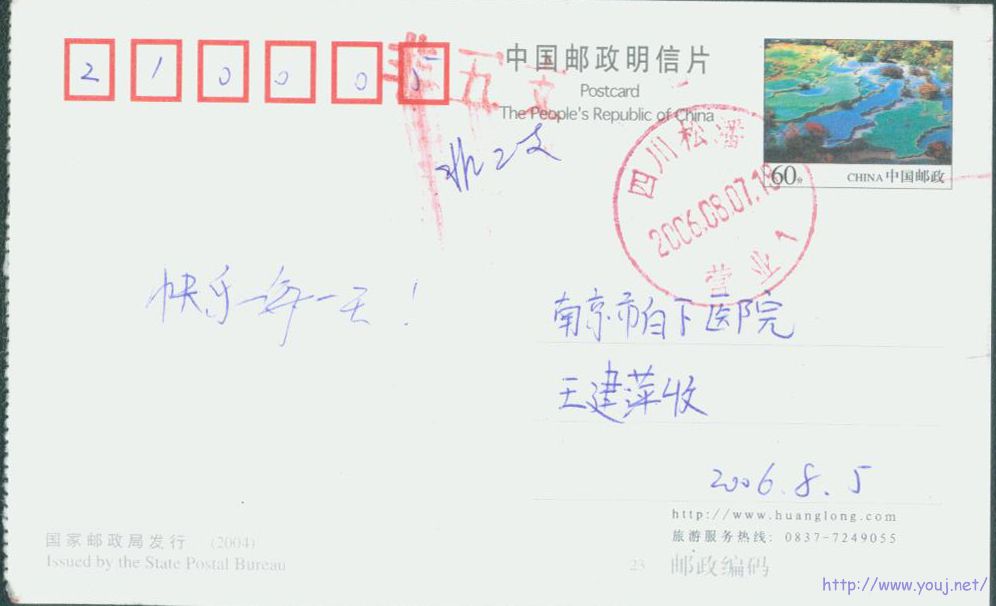 210005
中国邮政明信片
Postcard
The People's Republic of China
60分
CHINA 中国邮政
四川松潘
2006.08.07.18
营业1
快乐每一天！
南京市白下医院
王建萍收
2006.8.5
http://www.huanglong.com
旅游服务热线: 0837-7249055
国家邮政局发行 (2004)
Issued by the State Postal Bureau
23 邮政编码
http://www.youj.net/